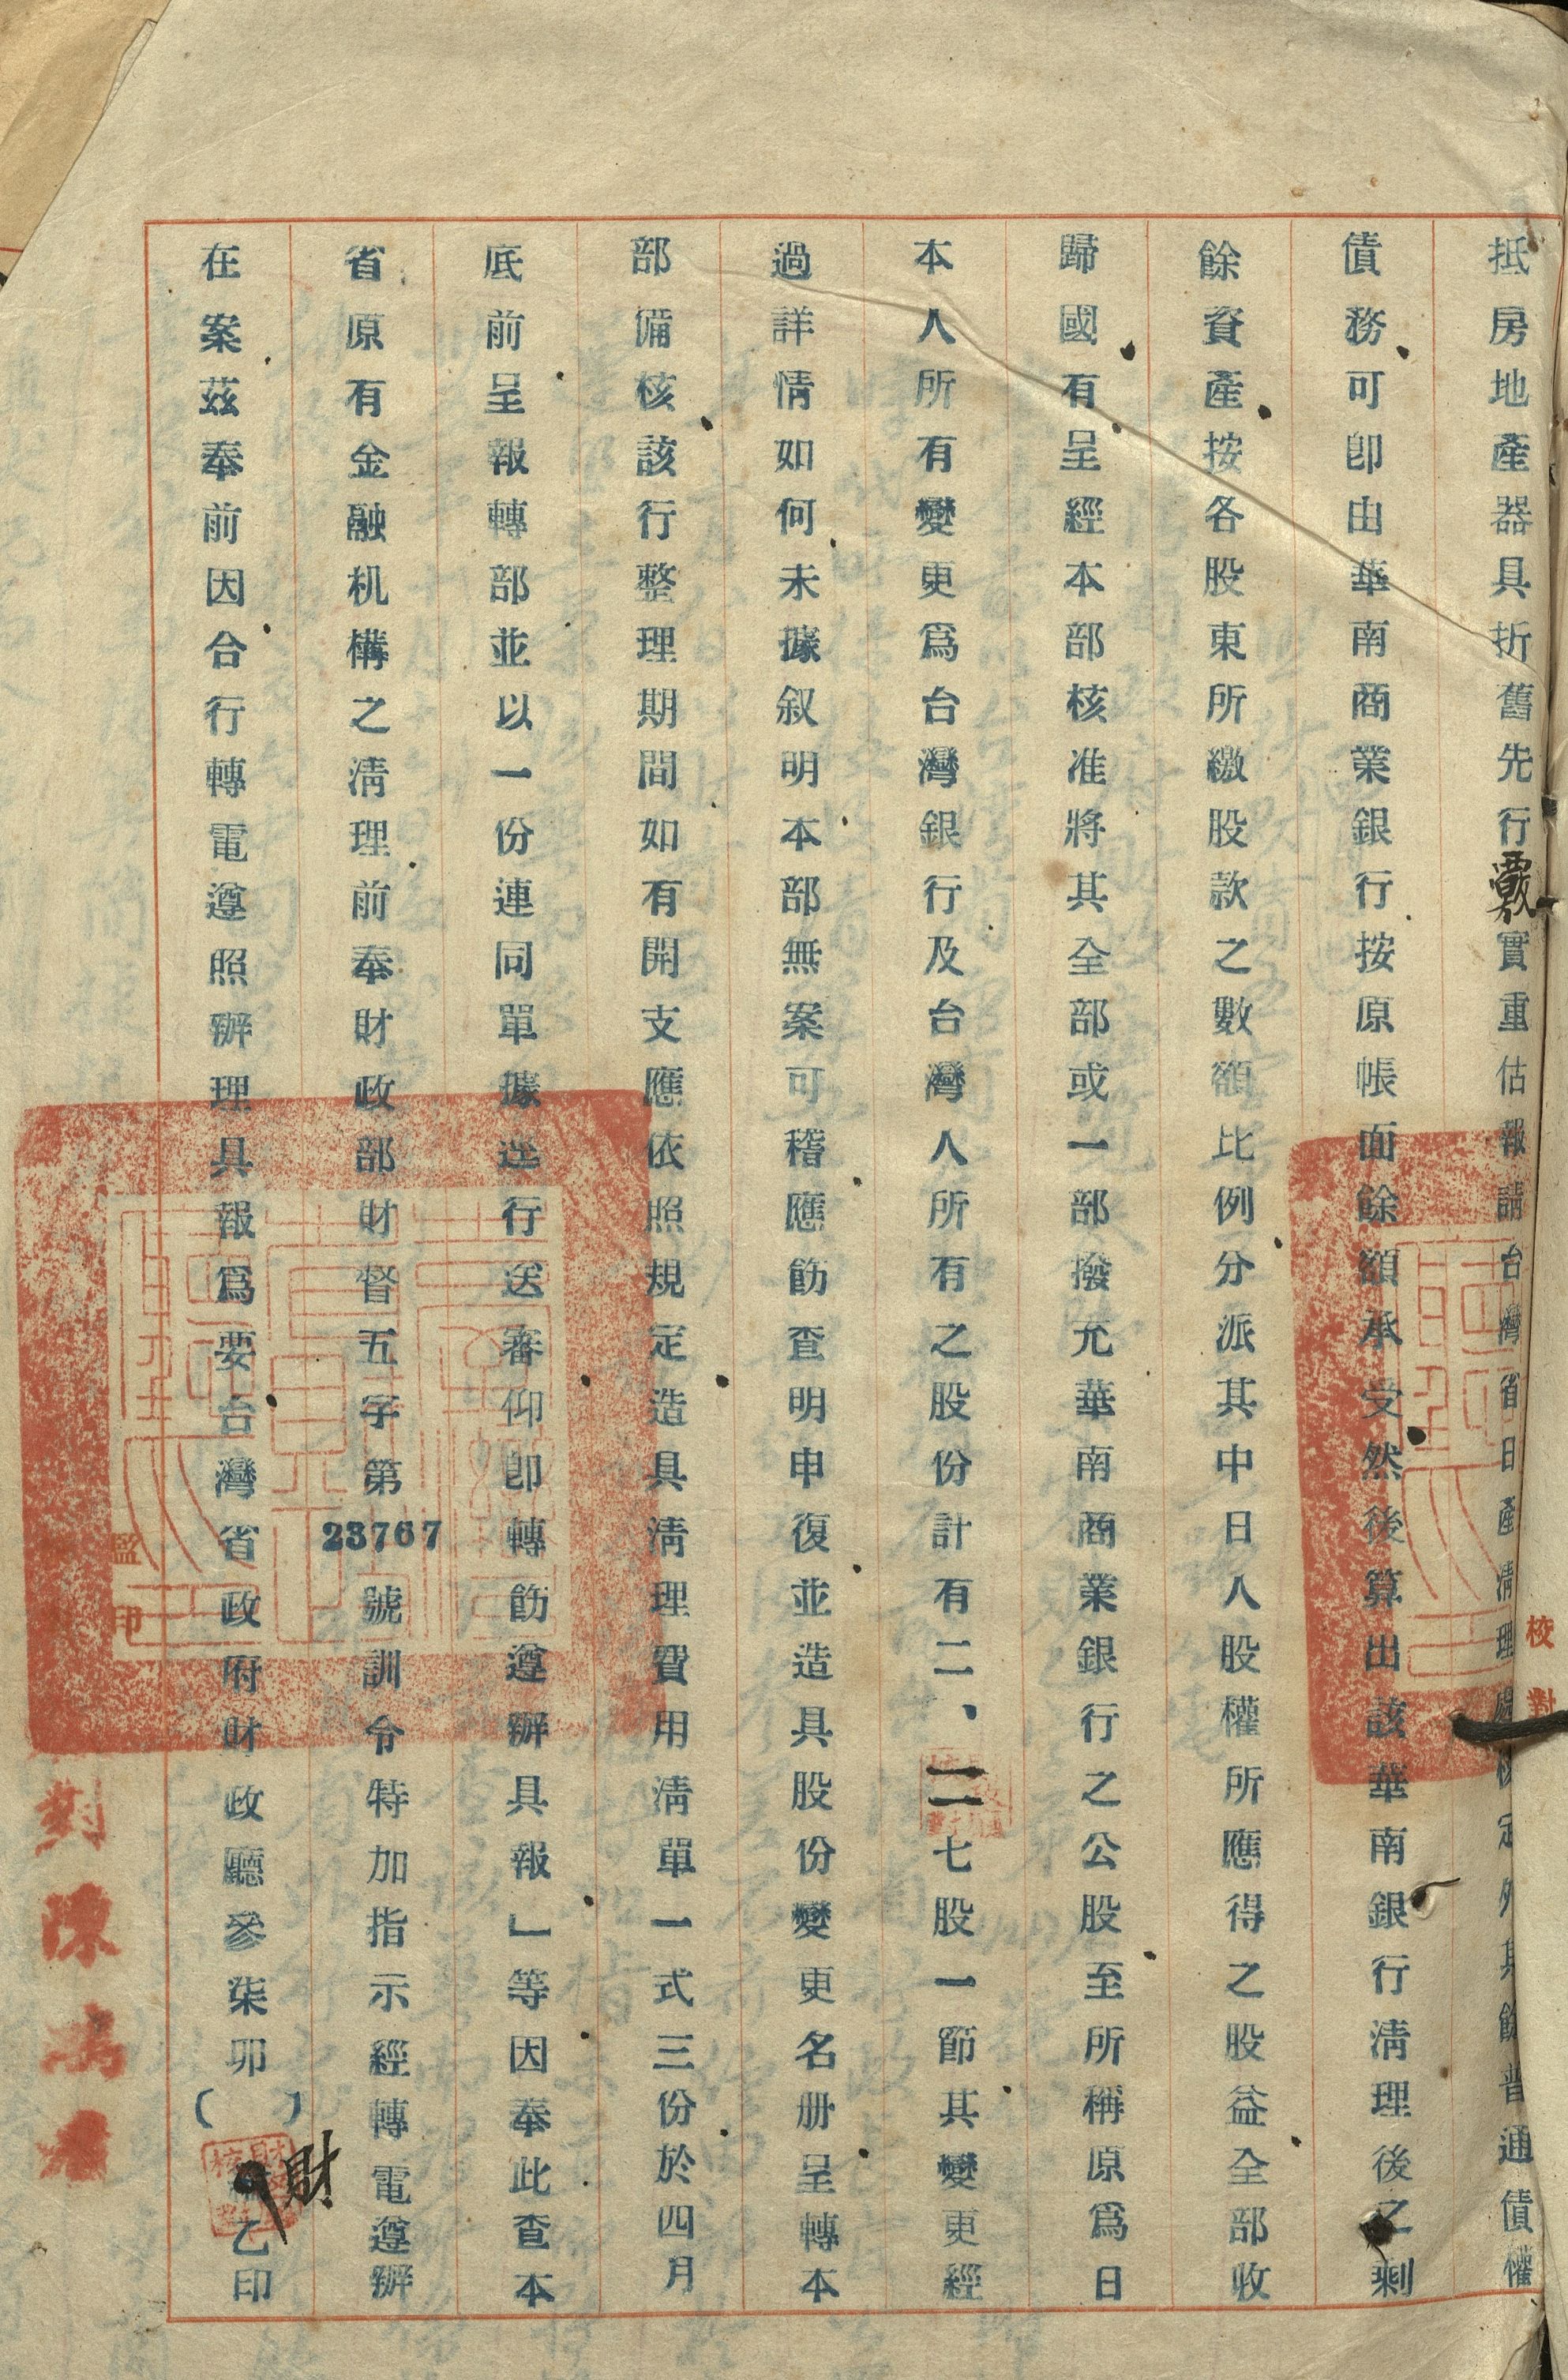 抵房地產器具折舊先行覈實重估報請台灣省日產清理處核定外其餘普通債權
債務可卽由華南商業銀行按原帳面餘額承受然後算出該華南銀行清理後之剩
餘資產按各股東所繳股款之數額比例分派其中日人股權所應得之股益全部收
歸國有呈經本部核准將其全部或一部撥充華南商業銀行之公股至所稱原爲日
本人所有變更爲台灣銀行及台灣人所有之股份計有二、二七股一節其變更經
過詳情如何未據叙明本部無案可稽應飭查明申復並造具股份變更名册呈轉本
部備核該行整理期間如有開支應依照規定造具清理費用清單一式三份於四月
底前呈報轉部並以一份連同單據逕行送審仰卽轉飭遵辦具報」等因奉此查本
省原有金融机構之清理前奉財政部財督五字第23767號訓令特加指示經轉電遵辦
在案茲奉前因合行轉電遵照辦理具報爲要台灣省政府財政廳參柒卯(　)財乙印
校對
監印